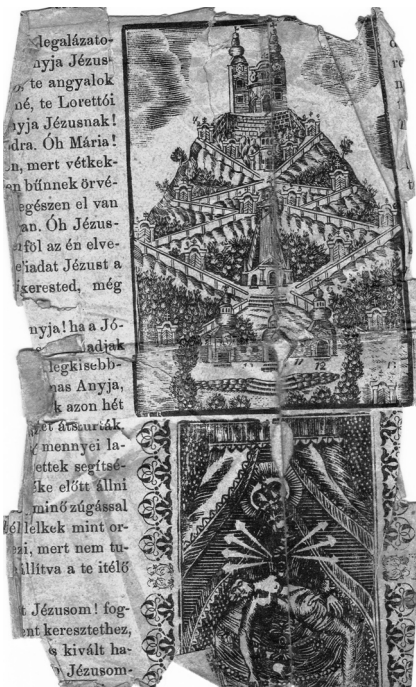 legalázato-
nyja Jézus-
te angyalok
né, te Lorettói
nyja Jézusnak!
dra. Óh Mária!
n, mert vétkek-
en bűnnek örvé-
egészen el van
an. Óh Jézus-
föl az én elve-
fiadat Jézust a
kerested, még
nyja! ha a Jó-
adjak
legkisebb-
nas Anyja,
k azon hét
et átszurták,
mennyei la-
ettek segítsé-
ke előtt állni
minő zúgással
lelkek mint or-
zi, mert nem tu-
állítva a te itélő
t Jézusom! fog-
ent keresztethez,
s kivált ha-
Jézusom-